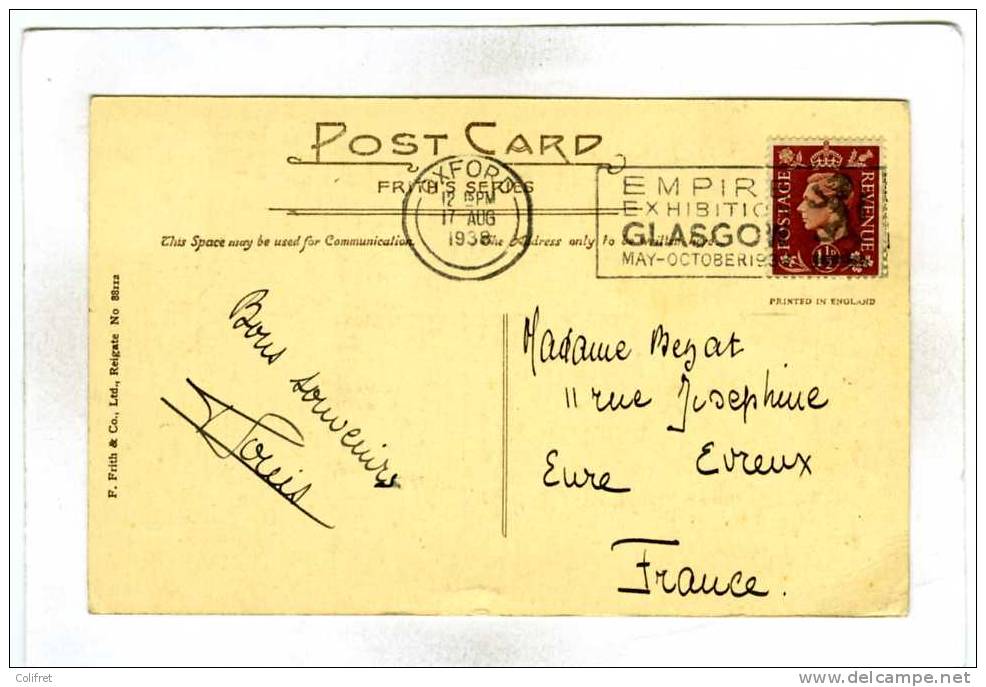 POST CARD
FRITH'S SERIES
OXFORD
12 15 PM
17 AUG
1938
EMPIRE
EXHIBITIO
GLASGO
MAY-OCTOBER 193
POSTAGE
REVENUE
1½D
This Space may be used for Communication.
The Address only to be written here.
PRINTED IN ENGLAND
F. Frith & Co., Ltd., Reigate No 88112
Bons souvenirs
Louis
Madame Bezat
11 rue Josephine
Evreux
Eure
France.
Colifret
www.delcampe.net